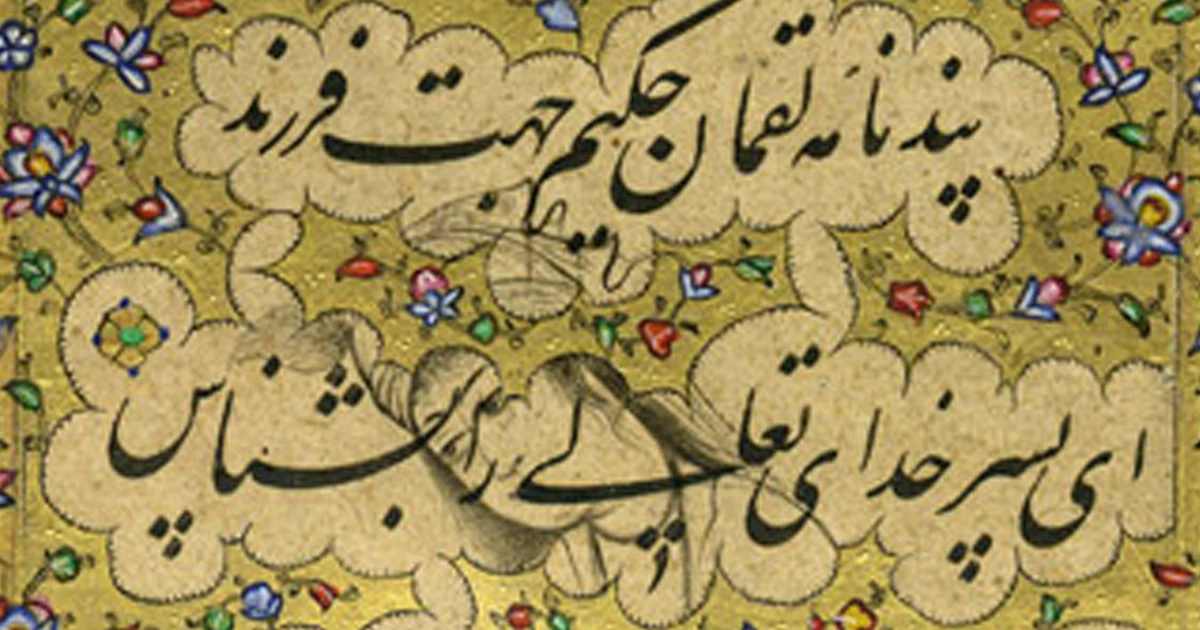 پند نامهٔ لقمان حکیم جهت فرزند
ای پسر خدای تعالی را بشناس